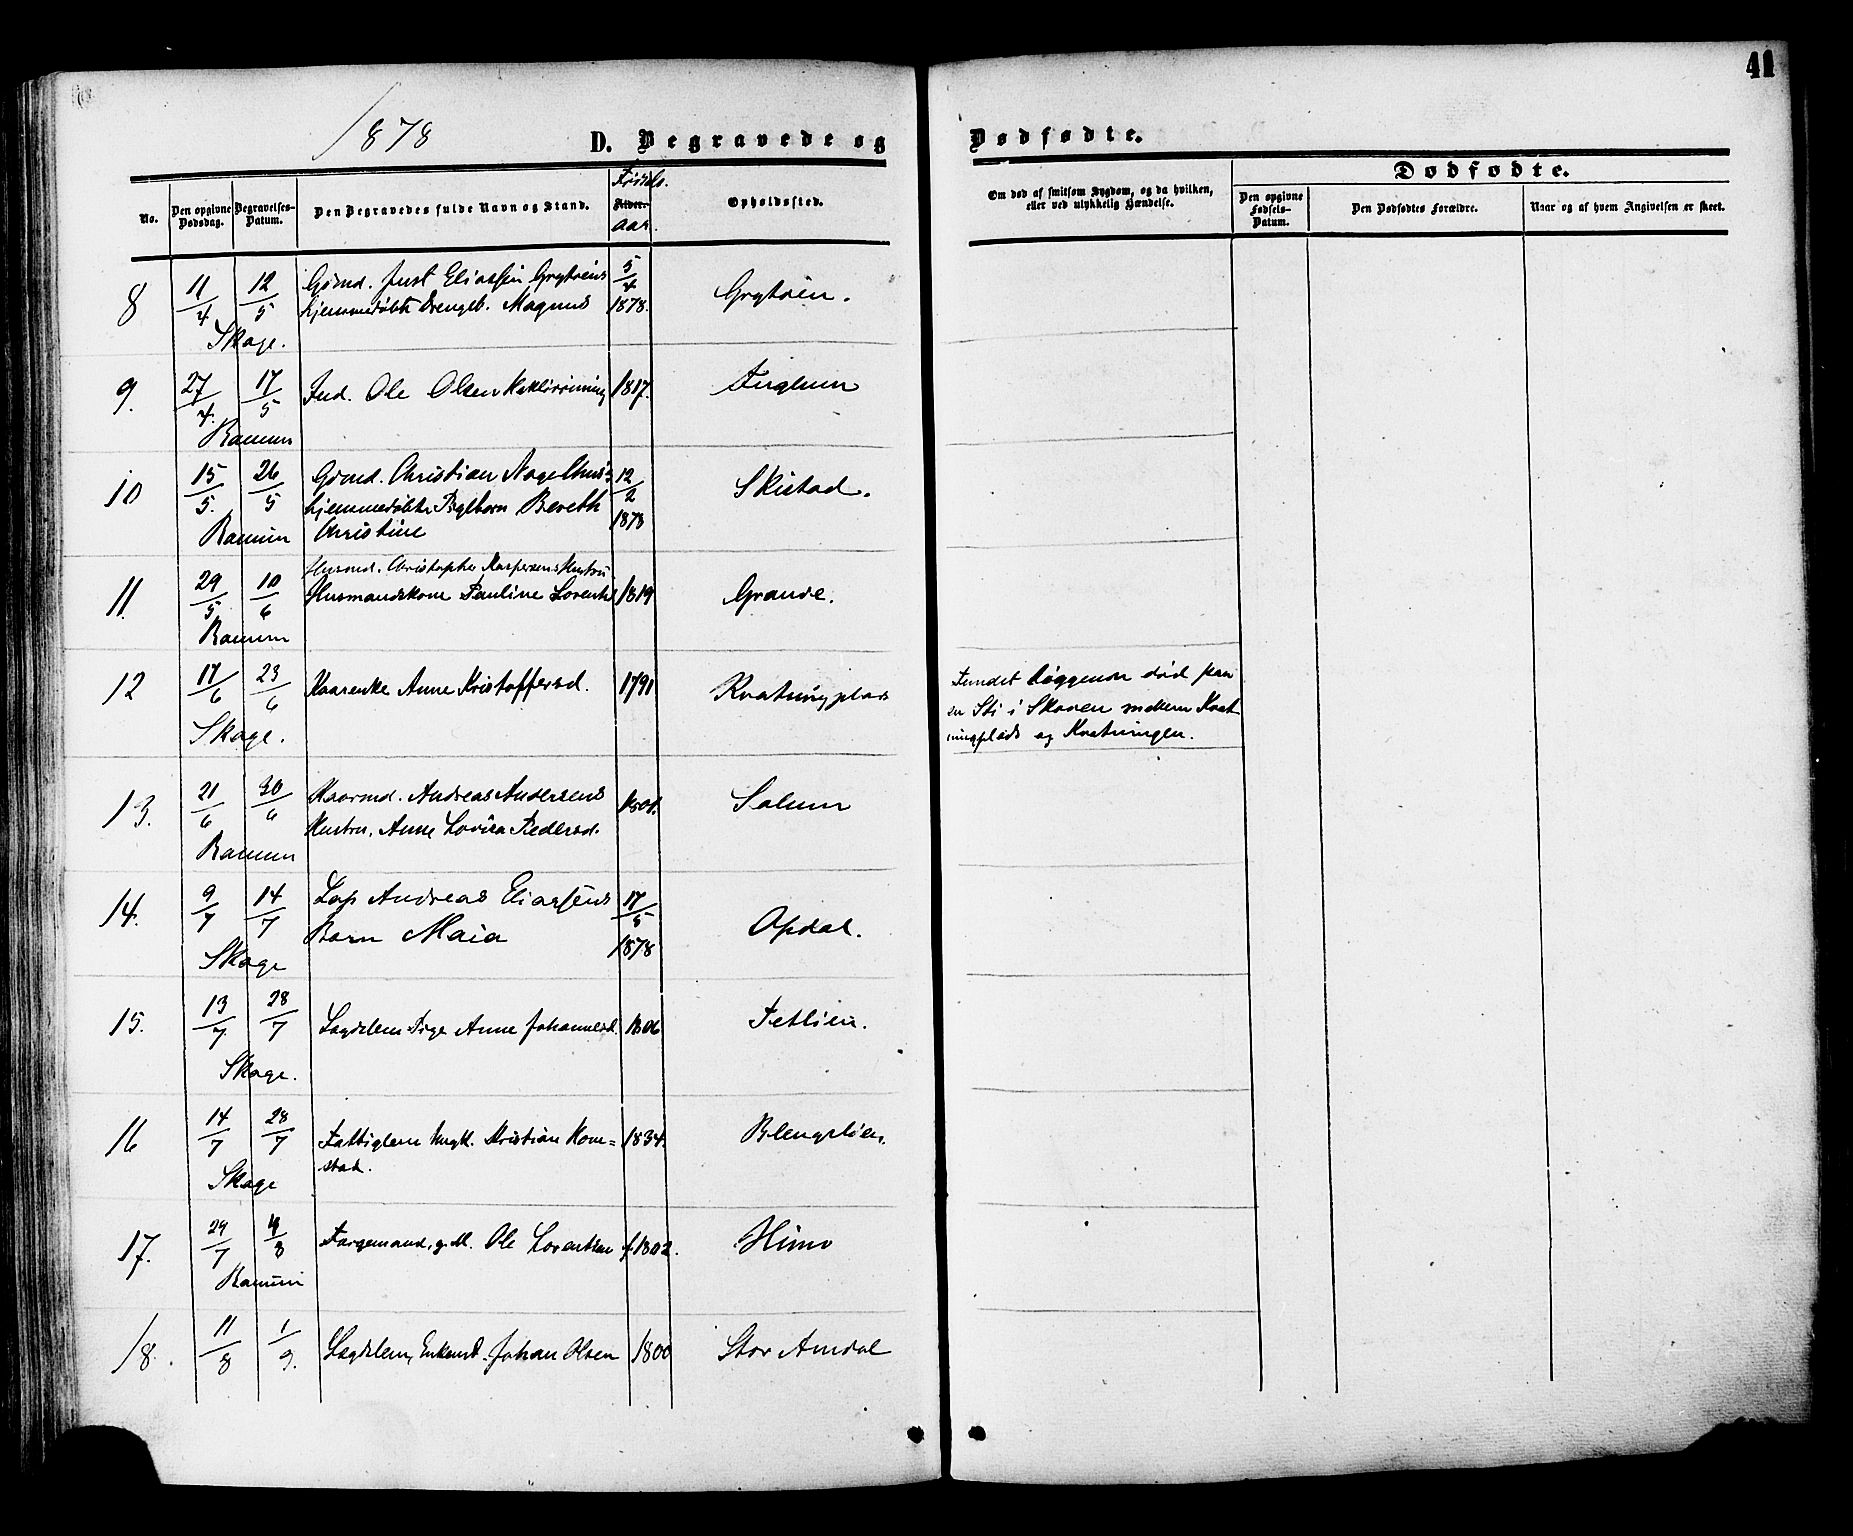 41
1878 D. Begravede og Dødfødte.
No.
Den opgivne Dødsdag.
Begravelses-Datum.
Den Begravedes fulde Navn og Stand.
Fødsels-
Alder.
aar.
Opholdssted.
Om død af smitsom Sygdom, og da hvilken,
eller ved ulykkelig Hændelse.
Dødfødte.
Den opgivne Fødsels-Datum.
Den Dødfødtes Forældre.
Naar og af hvem Angivelsen er skeet.
8 11/4 12/5 Gdmd. Just Eliassen Grytøiens 5/4
hjemmedøbte Drengeb. Magnus 1878. Grytøien.
Skage.
9. 27/4. 17/5 Ind. Ole Olsen 1817.
Ranum
10 15/5. 26/5 Gdmd. Christian Nagelhus's 12/2 Skistad.
hjemmedøbte Pigebarn Bereth 1878
Ranum Christine
Husmd. Christopher Kaspersens Hustru
11. 29/5 10/6 Husmandskone Pauline Lorents 1819 Grande.
Ranum
12 17/6 23/6 Kaarenke Anne Kristoffersd. 1791 Kvatningplads
Fundet liggende død paa
en Sti i Skoven mellem Kvat-
ningplads og Kvatningen.
Skage.
13. 21/6 30/6 Kaarmd. Andreas Andersens 1801. Salum
Hustru, Anne Lovisa Pedersd.
Ranum
14. 9/7 14/7 Lap Andreas Eliassens 17/5
Barn Maia 1878 Opdal.
Skage
15. 13/7 28/7 Lægdslem Pige Anne Johannesd. 1806 Fetlien.
Skage.
16 14/7 28/7 Fattiglem Ungk. Kristian Kom- 1834.
stad.
Skage
17. 29/7 4/8 Ole Lorentsen f. 1802. Himo
Ranum
18. 11/8 1/9. Lægdslem, Enkemd. Johan Olsen 1800 Stor Amdal